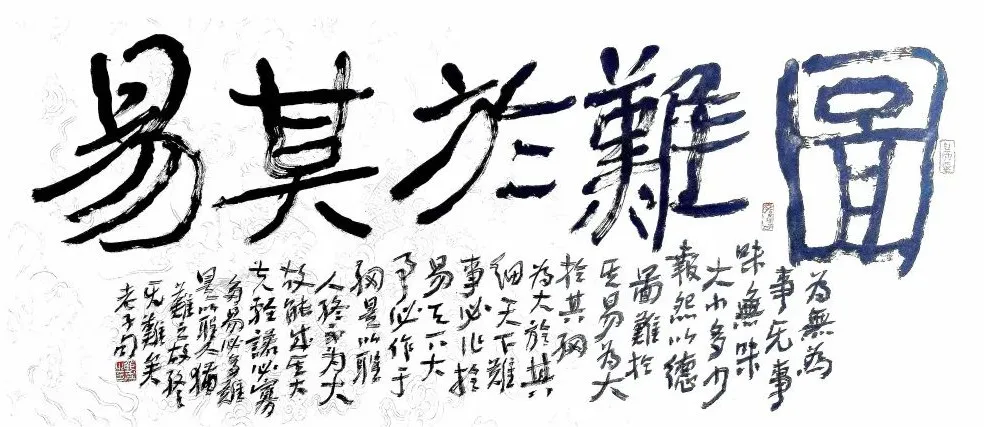 圖難於其易
為無為
事无事
味無味
大小多少
報怨以德
圖難於
其易為大
於其細
為大於其
細天下難
事必作於
易天下大
事必作于
細是以聖
人終不为大
故能成其大
夫輕諾必寡
多易必多難
是以聖人猶
難之故終
无難矣
老子句